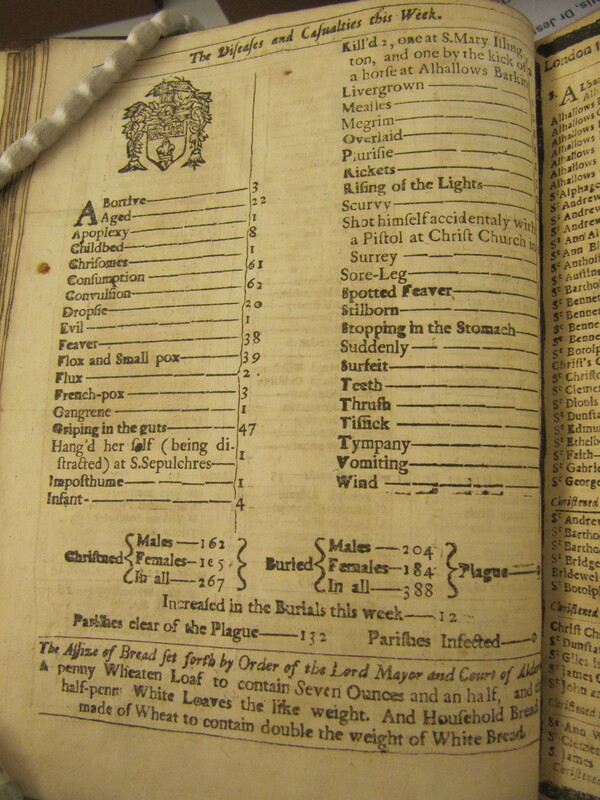 The Diseases and Casualties this Week.
ABortive — 3
Aged — 22
Apoplexy — 1
Childbed — 8
Chrisomes — 1
Consumption — 61
Convulsion — 62
Dropsie — 20
Evil — 1
Feaver — 38
Flox and Small pox — 39
Flux — 2
French-pox — 3
Gangrene — 1
Griping in the guts — 47
Hang'd her self (being di-
stracted) at S.Sepulchres — 1
Imposthume — 1
Infant — 4
Kill'd 2, one at S.Mary Isling-
ton, and one by the kick of a
a horse at Alhallows Barkin
Livergrown
Measles
Megrim
Overlaid
Plurisie
Rickets
Rising of the Lights
Scurvy
Shot himself accidentaly with
a Pistol at Christ Church in
Surrey
Sore-Leg
Spotted Feaver
Stilborn
Stopping in the Stomach
Suddenly
Surfeit
Teeth
Thrush
Tissick
Tympany
Vomiting
Wind
Christned { Males — 162 Females — 105 In all — 267 }
Buried { Males — 204 Females — 184 In all — 388 } Plague — 0
Increased in the Burials this week — 12
Parishes clear of the Plague — 132 Parishes Infected — 0
The Assize of Bread set forth by Order of the Lord Mayor and Court of Alder
A penny Wheaten Loaf to contain Seven Ounces and an half, and
half-penny White Loaves the like weight. And Houshold Bread
made of Wheat to contain double the weight of White Bread.
London
Alhallows
Alhallows
Alhallows
Alhallows
Alhallows
St Alphage
St Andrew
St Andrew
St Andrew
St Ann
St Ann Bl
St Antho
St Austin
St Barthol
St Bennet
St Bennet
St Bennet
St Bennet
St Botolp
Christ's C
St Christo
St Clemen
St Dionis
St Dunsta
St Edmu
St Ethelb
St Faith
St Gabrie
St George
Christened
St Andrew
St Bartho
St Bartho
St Bridge
Bridewel
St Botolp
Christened
Christ Ch
St Dunsta
St Giles
St James
St John
Christened
St Ann
St Clemen
St James
Christened